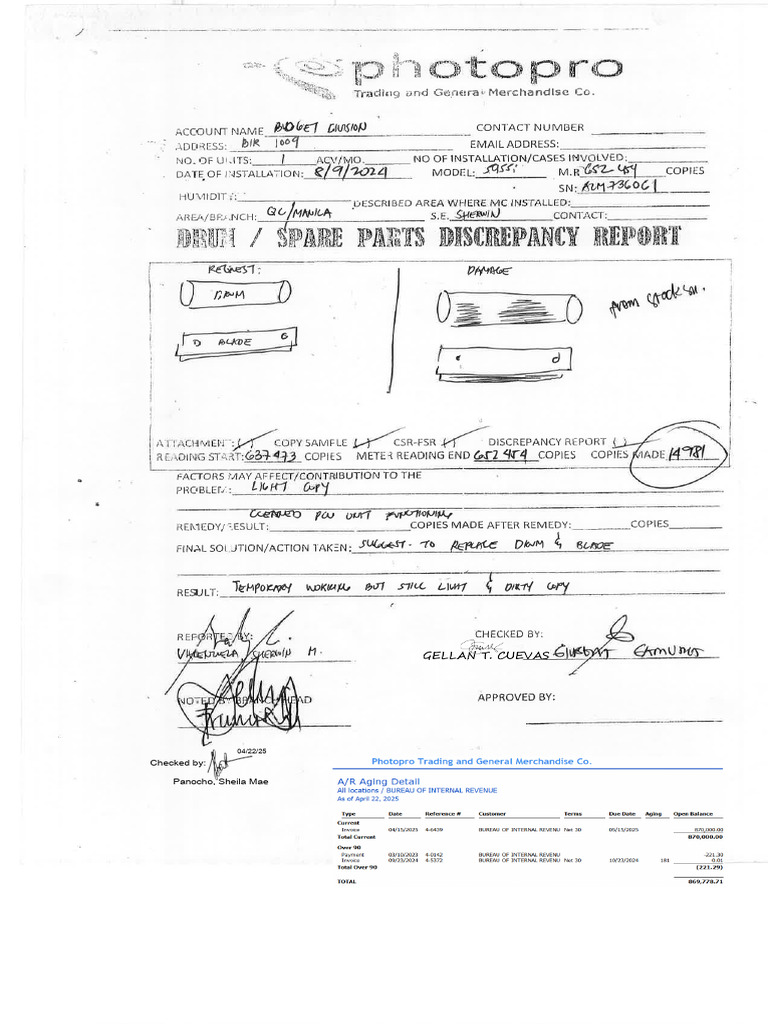 photopro
Trading and General Merchandise Co.
ACCOUNT NAME BUDGET DIVISION CONTACT NUMBER
ADDRESS: BIR 1009 EMAIL ADDRESS:
NO. OF UNITS: 1 ACV/MO. NO OF INSTALLATION/CASES INVOLVED:
DATE OF INSTALLATION: 8/9/2024 MODEL: 5955i M.R 652 454 COPIES
SN: A2M736061
HUMIDITY: DESCRIBED AREA WHERE MC INSTALLED:
AREA/BRANCH: QC/MANILA S.E. SHERWIN CONTACT:
DRUM / SPARE PARTS DISCREPANCY REPORT
REQUEST: DAMAGE
DRUM
from stock
D BLADE
d
ATTACHMENT: ( ) COPY SAMPLE ( ) CSR-FSR ( ) DISCREPANCY REPORT ( )
READING START: 637473 COPIES METER READING END 652 454 COPIES COPIES MADE 14981
FACTORS MAY AFFECT/CONTRIBUTION TO THE
PROBLEM: LIGHT COPY
CLEANED PCU UNIT FUNCTIONING
REMEDY/RESULT: COPIES MADE AFTER REMEDY: COPIES
FINAL SOLUTION/ACTION TAKEN: SUGGEST TO REPLACE DRUM & BLADE
RESULT: TEMPORARY WORKING BUT STILL LIGHT & DIRTY COPY
REPORTED BY: CHECKED BY:
VALENZUELA, SHERWIN M. GELLAN T. CUEVAS
NOTED BY BRANCH HEAD APPROVED BY:
04/22/25
Checked by:
Panocho, Sheila Mae
Photopro Trading and General Merchandise Co.
A/R Aging Detail
All locations / BUREAU OF INTERNAL REVENUE
As of April 22, 2025
Type Date Reference # Customer Terms Due Date Aging Open Balance
Current
Invoice 04/15/2025 4-6439 BUREAU OF INTERNAL REVENU Net 30 05/15/2025 870,000.00
Total Current 870,000.00
Over 90
Payment 03/10/2023 4-0142 BUREAU OF INTERNAL REVENU -221.30
Invoice 09/23/2024 4-5372 BUREAU OF INTERNAL REVENU Net 30 10/23/2024 181 0.01
Total Over 90 (221.29)
TOTAL 869,778.71